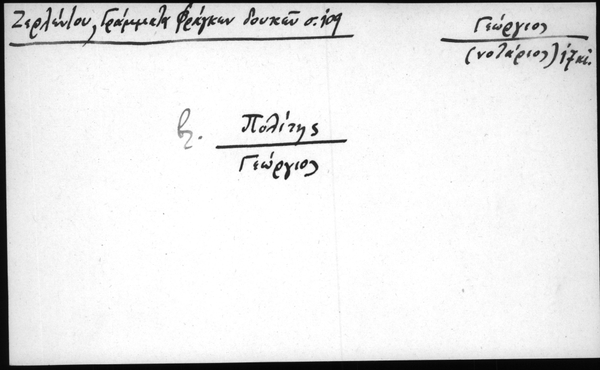 Ζερλέντου, Γράμματα Φράγκων δουκῶν σ. 109
Γεώργιος
(νοτάριος) 17 αἰ.
βλ. Πολίτης
Γεώργιος